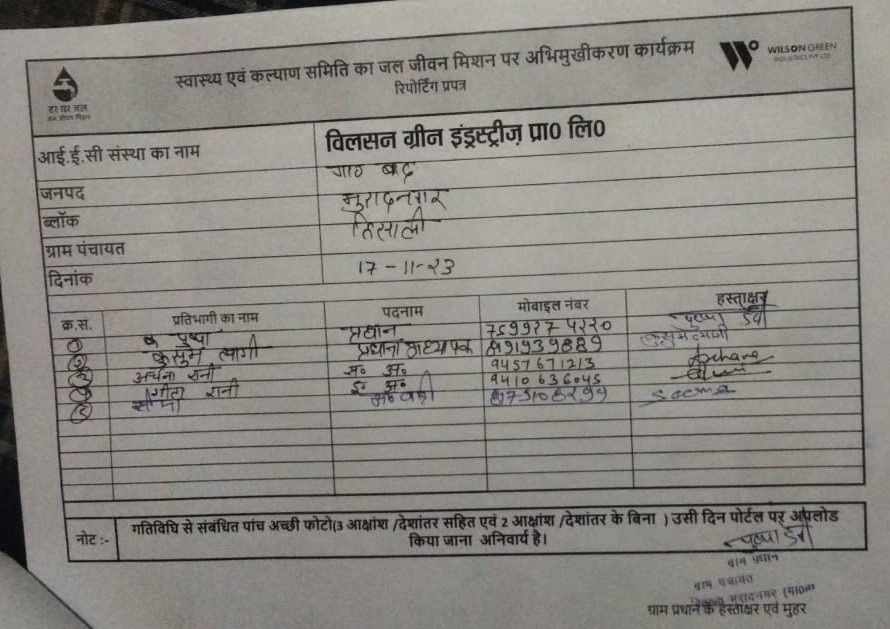 स्वास्थ्य एवं कल्याण समिति का जल जीवन मिशन पर अभिमुखीकरण कार्यक्रम
रिपोर्टिंग प्रपत्र
हर घर जल
जल जीवन मिशन
WILSON GREEN
INDUSTRIES PVT LTD
आई.ई.सी संस्था का नाम विलसन ग्रीन इंड्रस्ट्रीज़ प्रा० लि०
जनपद गा० बाद
ब्लॉक मुरादनगर
ग्राम पंचायत
दिनांक 17-11-23
क्र.सं. प्रतिभागी का नाम पदनाम मोबाइल नंबर हस्ताक्षर
1 पुष्पा प्रधान पुष्पा देवी
2 कुसुम त्यागी प्रधाना अध्यापक 8191939889
3 अर्चना रानी स० अ० 9457671213 Archana
4 गीता रानी इ० अ० 9410636045
5 Seema
नोट :- गतिविधि से संबंधित पांच अच्छी फोटो(3 आक्षांश /देशांतर सहित एवं 2 आक्षांश /देशांतर के बिना ) उसी दिन पोर्टल पर अपलोड
किया जाना अनिवार्य है।
पुष्पा देवी
ग्राम प्रधान
ग्राम पंचायत
ग्राम प्रधान के हस्ताक्षर एवं मुहर